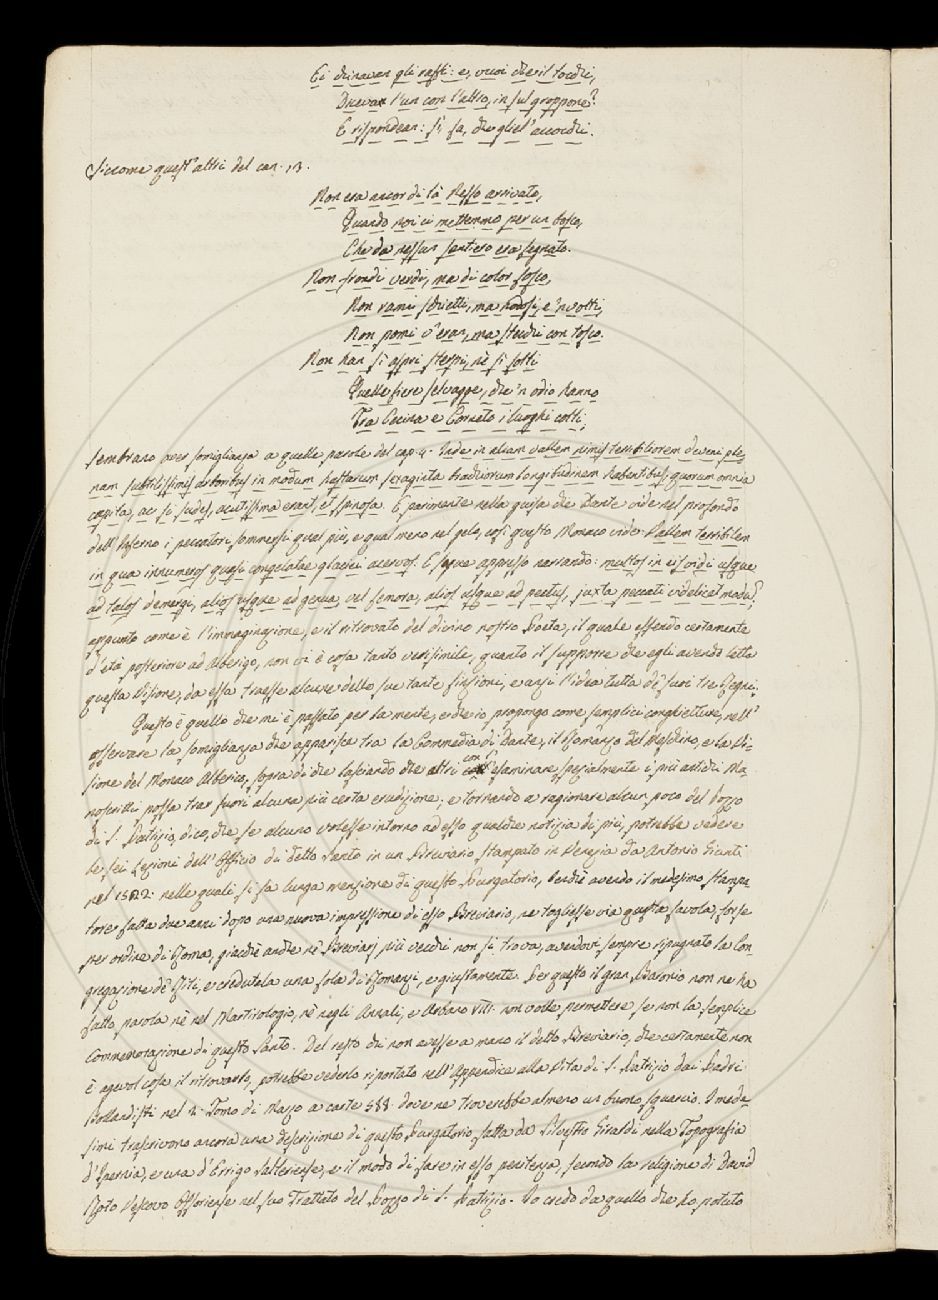 Ei chinavan gli raffi: e, vuoi che il tocchi,
Dicevan l'un con l'altro, in sul groppone?
E rispondean: sì, fa, che gliel'accocchi.
Siccome quest'altri del can. 13.
Non era ancor di là Nesso arrivato,
Quando noi ci mettemmo per un bosco,
Che da nessun sentiero era segnato.
Non frondi verdi, ma di color fosco,
Non rami schietti, ma nodosi, e 'nvolti,
Non pomi v'eran, ma stecchi con tosco.
Non han sì aspri sterpi, nè sì folti
Quelle fiere selvagge, che 'n odio hanno
Tra Cecina e Corneto i luoghi colti;
sembrano aver somiglianza a quelle parole del cap. 4. Inde in aliam vallem nimis terribiliorem deveni ple-
nam subtilissimis arboribus in modum hastarum sexaginta brachiorum longitudinem habentibus, quorum omnia
capita, ac si sudes, acutissima erant, et spinosa. E parimente nella guisa che Dante vide nel profondo
dell'Inferno i peccatori sommersi qual più, e qual meno nel gelo, così questo Monaco vide: Vallem terribilem
in qua innumeros quasi congelatae glaciei acervos. E segue appresso narrando: multos in eis vidi usque
ad talos demergi, alios usque ad genua, vel femora, alios usque ad pectus, juxta peccati videlicet modū;
appunto come è l'immaginazione, e il ritrovato del divino nostro Poeta, il quale essendo certamente
d'età posteriore ad Alberigo, non vi è cosa tanto verisimile, quanto il supporre che egli avendo letta
questa Visione, da essa traesse alcune delle sue tante finzioni, e anzi l'idea tutta de' suoi tre Regni.
Questo è quello che mi è passato per la mente, e che io propongo come semplici conghietture, nell'
osservare la somiglianza che apparisce tra la Commedia di Dante, il Romanzo del Meschino, e la Vi-
sione del Monaco Alberico, sopra di che lasciando che altri con esaminare spezialmente i più antichi Ma-
noscritti possa trar fuori alcuna più certa erudizione; e tornando a ragionare alcun poco del Pozzo
di S. Patrizio, dico, che se alcuno volesse intorno ad esso qualche notizia di più, potrebbe vedere
le sei Lezioni dell'Offizio di detto Santo in un Breviario stampato in Venezia da Antonio Giunti
nel 1522. nelle quali si fa lunga menzione di questo Purgatorio, benchè avendo il medesimo stampa-
tore fatta due anni dopo una nuova impressione di esso Breviario, ne togliesse via questa favola, forse
per ordine di Roma, giacchè anche ne' Breviarj più vecchi non si trova, avendovi sempre ripugnato la Con-
gregazione de' Riti, e credutala una fola di Romanzi, e giustamente. Per questo il gran Baronio non ne ha
fatto parola nè nel Martirologio, nè negli Annali, e Urbano VIII. non volle permettere se non la semplice
Commemorazione di questo Santo. Del resto chi non avesse a mano il detto Breviario, che certamente non
è agevol cosa il ritrovarlo, potrebbe vederlo riportato nell'Appendice alla Vita di S. Patrizio dai Padri
Bollandisti nel 2. Tomo di Marzo a carte 588. dove ne troverebbe almeno un buono squarcio. I mede-
simi trascrivono ancora una descrizione di questo Purgatorio fatta da Silvestro Giraldi nella Topografia
d'Ibernia, e una d'Errigo Salteriense, e il modo di fare in esso penitenza, secondo la religione di David
Roto Vescovo Ossoriense nel suo Trattato del Pozzo di S. Patrizio. Io credo da quello che ho potuto